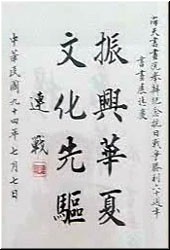 海天書畫院舉辦紀念抗日戰爭勝利六十週年
書畫展誌慶
振興華夏
文化先驅
連戰
中華民國九十四年七月七日